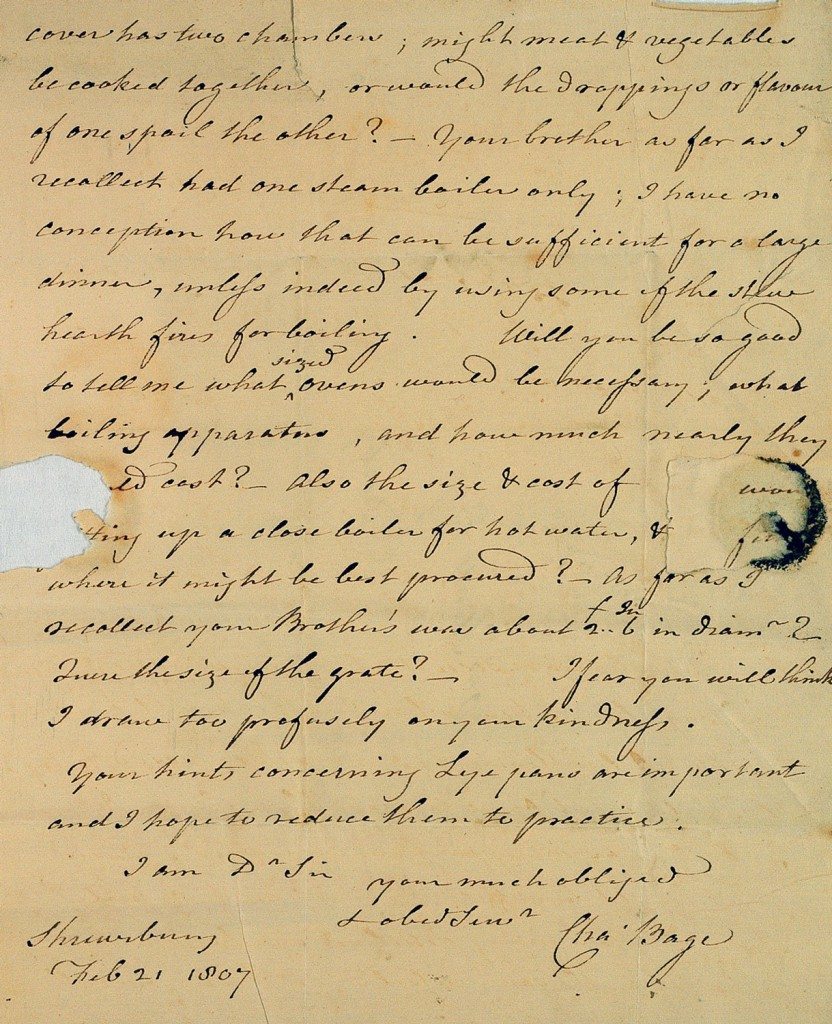 cover has two chambers; might meat & vegetables
be cooked together, or would the droppings or flavour
of one spoil the other? — Your brother as far as I
recollect had one steam boiler only; I have no
conception how that can be sufficient for a large
dinner, unless indeed by using some of the stew
hearth fires for boiling. Will you be so good
sized
to tell me what ^ ovens would be necessary; what
boiling apparatus, and how much nearly they
cost? — Also the size & cost of
up a close boiler for hot water, &
where it might be best procured? — As far as I
recollect your Brother's was about 2f..6In in diamr?
Quere the size of the grate? — I fear you will think
I draw too profusely on your kindness.
Your hints concerning Lye pans are important
and I hope to reduce them to practice.
I am Dr Sir your much obliged
& obed Servr
Shrewsbury Chas Bage
Feb 21 1807